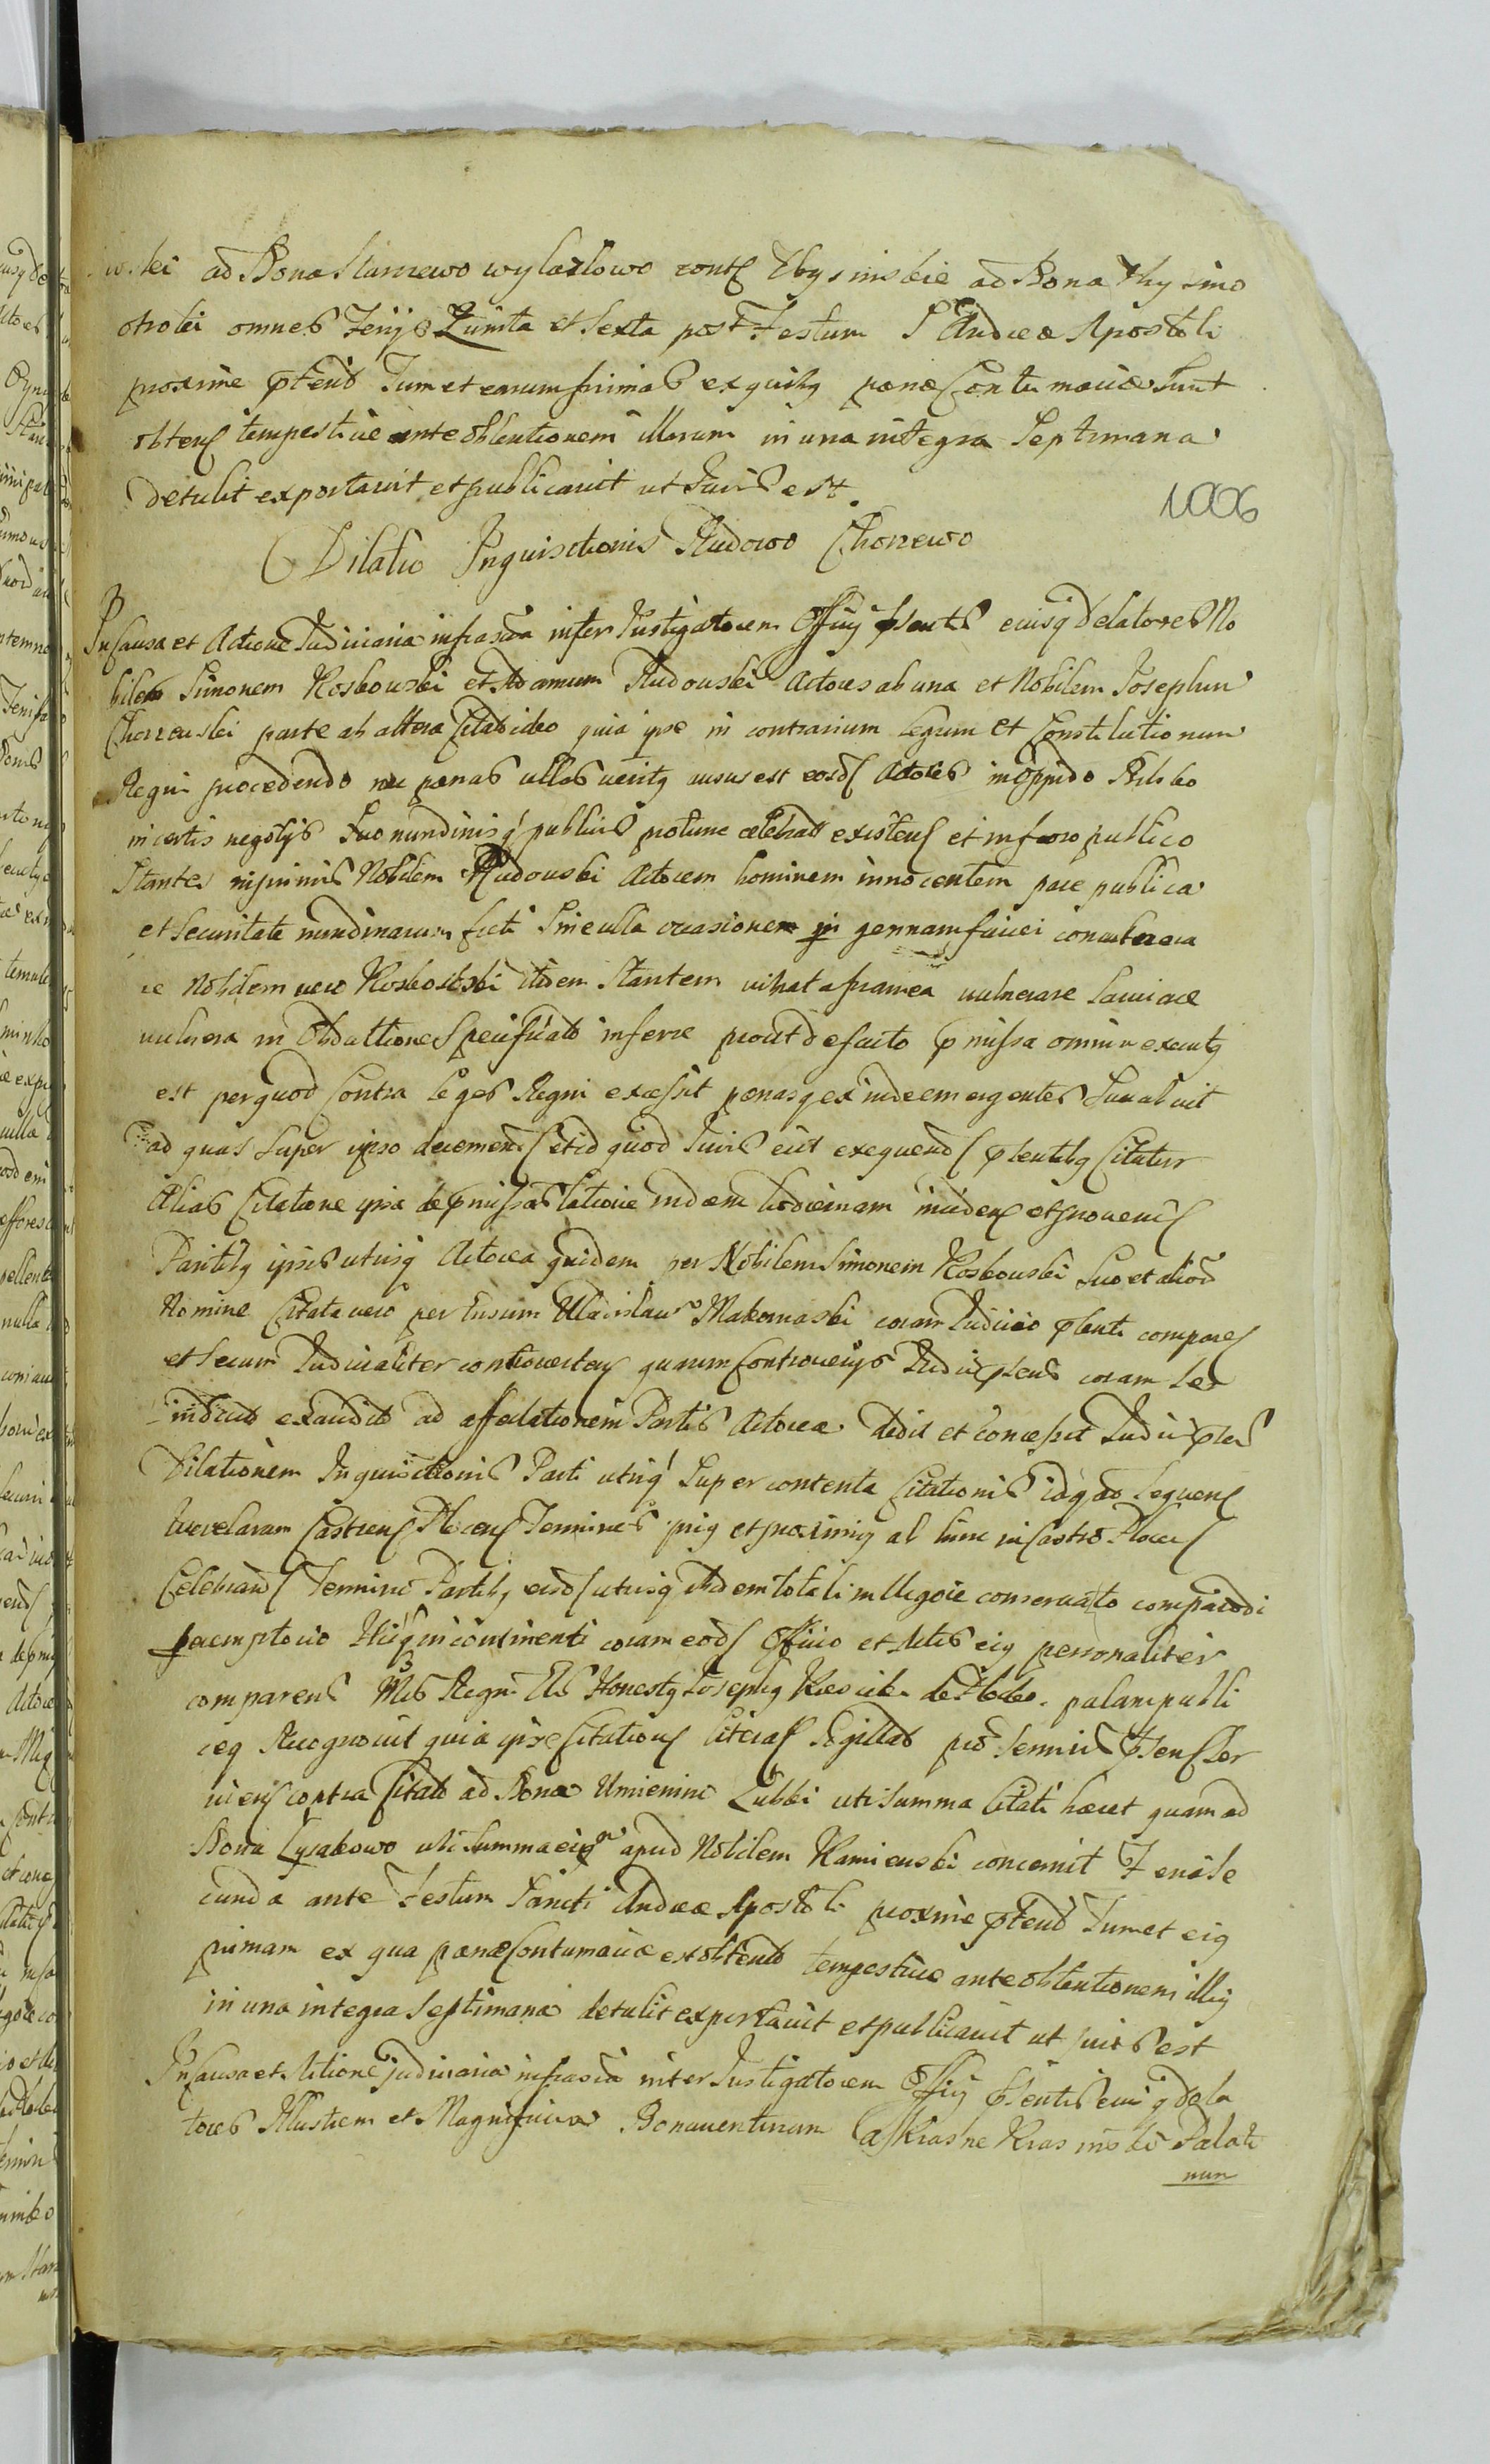 wski ad Bona Starzewo wylazlowo cont Zbyszinskie ad Bona
omnes Ferijs Quinta et Sexta post Festum S Andreæ Apostoli
proxime pterit Tum et earum primas ex quibq pænæ Contumaciæ sunt
obtent tempestive ante obtentionem illarum in una integra Septimana
detulit exportavit et publicavit ut Juris est.
1006
Dilatio Inquisitionis Rudowo Chorzewo
In Causa et Actione Judiciaria infrascra inter Instigatorem Officij psentis eiusq Delatores No
biles Simonem Koskowski et Adamum Rudowski Actores ab una et Nobilem Josephum
Chorzewski parte ab altera Citatos ideo quia ipse in contrarium Legum et Constitutionum
Regni procedendo nec pænas ullas veritq ausus est eosd Actores in Oppido Bilsko
in certis negotijs suo nundinisq publicis protunc celebrat existen et in foro publico
Stantes inprimis Nobilem Rudowski Actorem hominem innocentem pace publica
et Securitate nundinarum sine ulla occasione in
ce Nobilem vero Koskowski ibidem Stantem framea vulnerare
vulnera in Obductione Specificato inferre prout de facto pmissa omnia executq
est per quod Contra Leges Regni excessit pænasq exinde emergentes
ad quas super ipso decernend et id quod Juris erit exequend psentibq Citatur
Alias Citatione ipsa de pmissa latiori in diem hodiernam inciden et proveni
Partibq ipsis utrisq Actorea quidem per Nobilem Simonem Koskowski suo et aliord
Nomine Citata vero per Gnsum Uladislaum Makomaski coram Judicio psenti comparen
et secum Judicialiter controverten quarum Controversijs Judic psens coram se
inducto exaudito ad affectationem Partis Actoreæ dedit et concessit Judic psens
Dilationem Inquisitionis Parti utriq super contenta Citationis idq ad sequen
Querelarum Castren Plocen Terminos prig et proximiq al hunc in Castro Plocen
Celebrand Termino Partibq eisd utrisq ibidem totali in Negotio conservato comparedi
peremptorio Hicq in continenti coram eod Officio et Actis eiq personaliter
comparens Mrlis Regni Gnlis Honestq Josephq de Bilsko. palam publi
ceq Recognovit quia ipse Citation Literas Sigillat pro Terminis psen ser
vien contra Citato ad Bona Umienino Lubki uti summa Citati hæret quam ad
Bona Lysakowo uti summa eiq apud Nobilem Kamienski concernit Feria Se
cunda ante Festum Sancti Andreæ Apostoli proxime pterit Tum et eiq
primam ex qua pænæ Contumaciæ est obtento tempestive ante obtentionem illiq
in una integra Septimana detulit exportavit et publicavit ut Juris est
In Causa et Actione Judiciaria infrascra inter Instigatorem Officij psentis eiusq dela
tores Illustrem et Magnificum Bonaventuram a Krasne Krasinski Palati
num